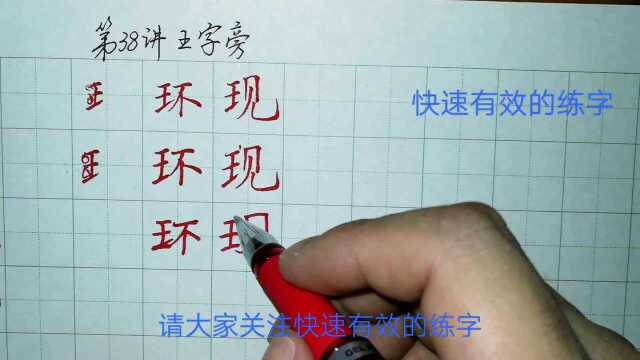 第38讲王字旁
环现
快速有效的练字
环现
环现
请大家关注快速有效的练字